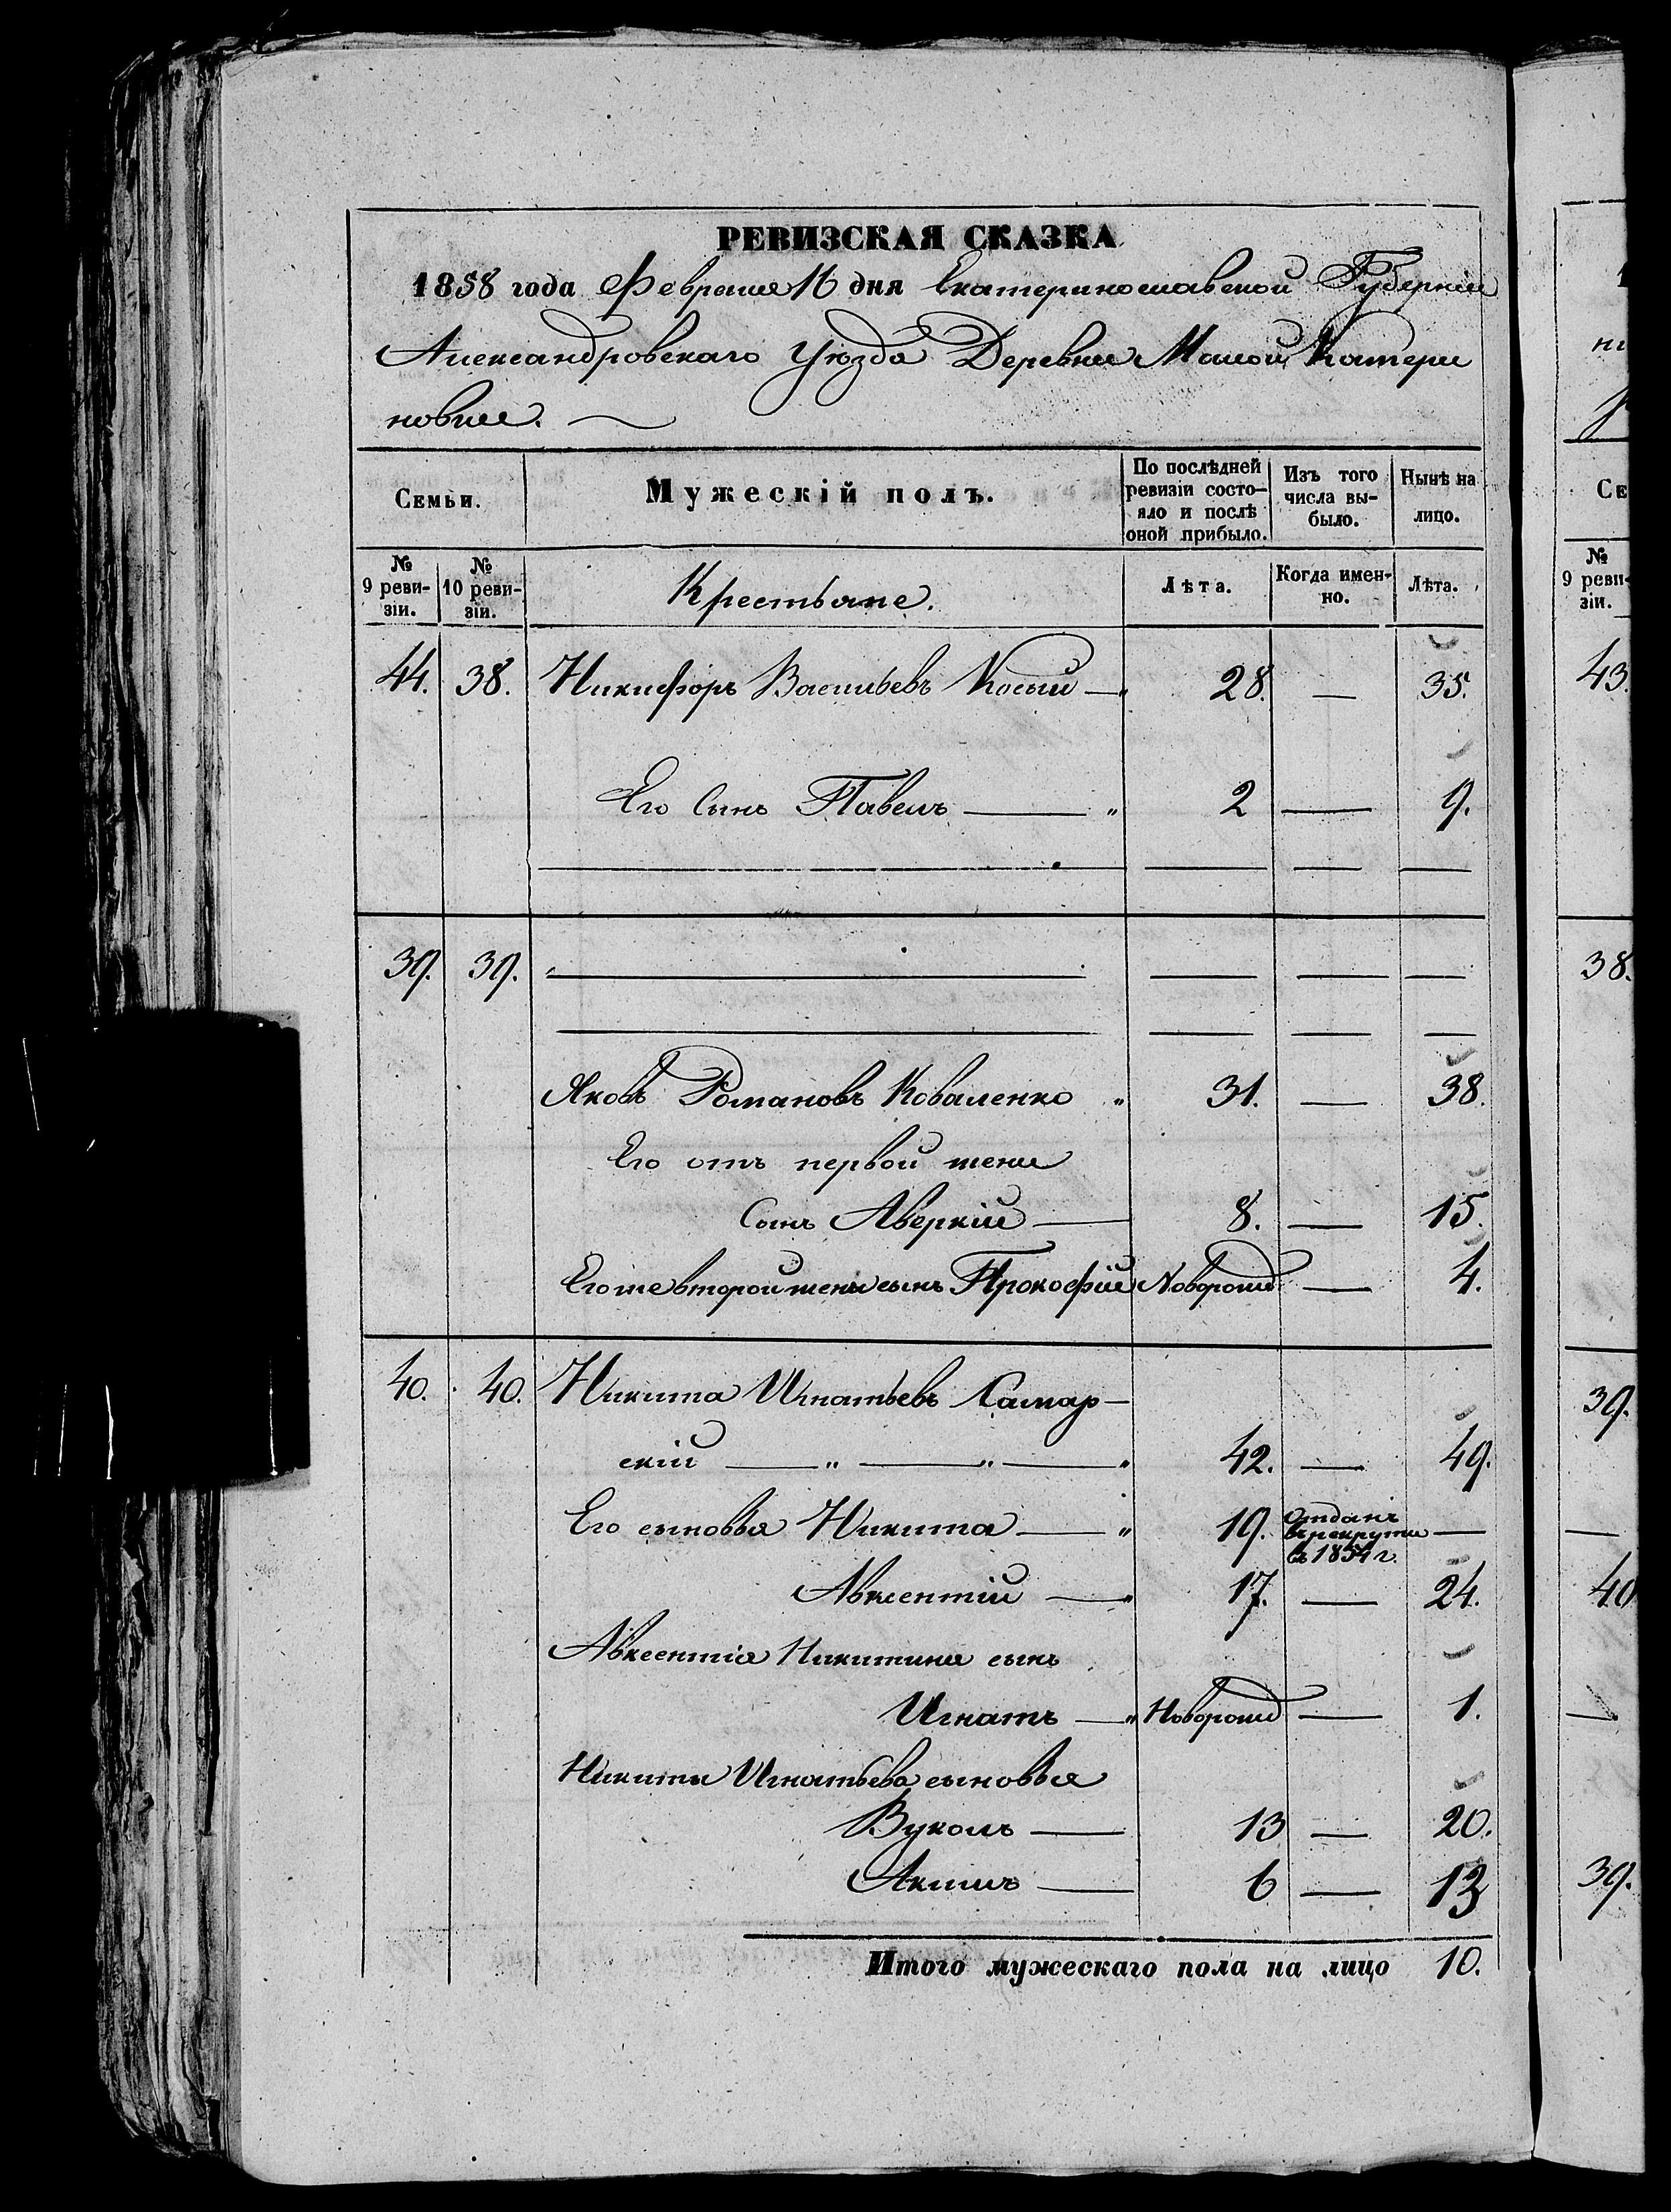 РЕВИЗСКАЯ СКАЗКА
1858 года Февраля 16 дня Екатеринославской Губернiи
Александровскаго Уѣзда Деревни Малой Катери
новки.
Семьи. Мужескій полъ. По послѣдней ревизіи состояло и послѣ оной прибыло. Изъ того числа выбыло. Нынѣ на лицо.
№ 9 ревизіи. № 10 ревизіи. Крестьяне. Лѣта. Когда именно. Лѣта.
44. 38. Никифоръ Васильевъ Косый — " 28. — 35.
Его Сынъ Павелъ — " 2 — 9.
39. 39.
Яковъ Романовъ Коваленко " 31. — 38.
Его отъ первой жены
Сынъ Аверкій — 8. — 15.
Егоже второй жены сынъ Прокофій Новорожд — 4.
40. 40. Никита Игнатьевъ Самар-
скій — " — " — " 42. — 49.
Его сыновья Никита — " 19. отданъ
врекруты —
въ 1854 г.
Авксентій — " 17. — 24.
Авксентія Никитина сынъ
Игнатъ — " Новорожд — 1.
Никиты Игнатьева сыновья
Вуколъ — 13 — 20.
Акимъ — 6 — 13
Итого мужескаго пола на лицо 10.
ни
Се
№
9 реви-
зіи.
43.
38.
39.
40
39.